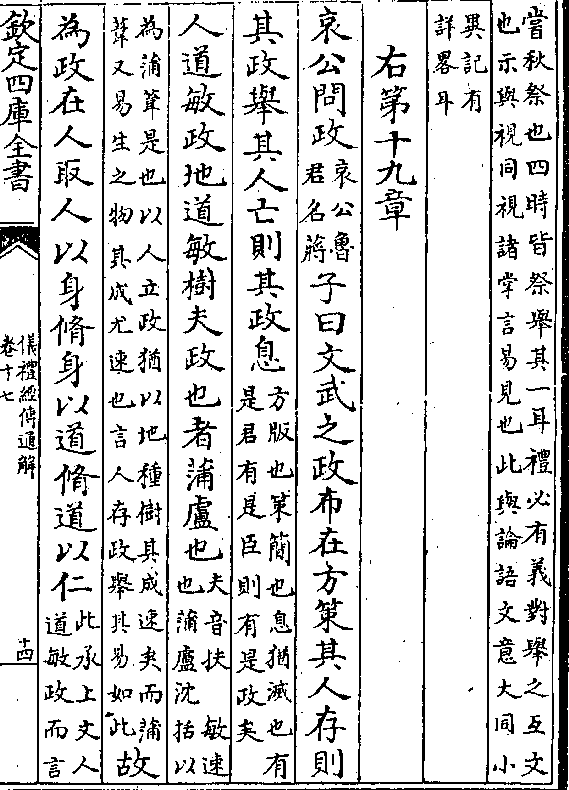 嘗秋祭也四時皆祭舉其一耳禮必有義對舉之互文
也示與視同視諸掌言易見也此與論語文意大同小
異記有
詳畧耳
右第十九章
哀公問政
哀公魯
君名蔣
子曰文武之政布在方策其人存則
其政舉其人亡則其政息
方版也策簡也息猶滅也有
是君有是臣則有是政矣
人道敏政地道敏樹夫政也者蒲盧也
夫音扶 敏速
也蒲盧沈括以
為蒲葦是也以人立政猶以地種樹其成速矣而蒲
葦又易生之物其成尤速也言人存政舉其易如此
故
為政在人取人以身脩身以道脩道以仁
此承上文人
道敏政而言
欽定四庫全書
儀禮經傳通解
卷十七
十四